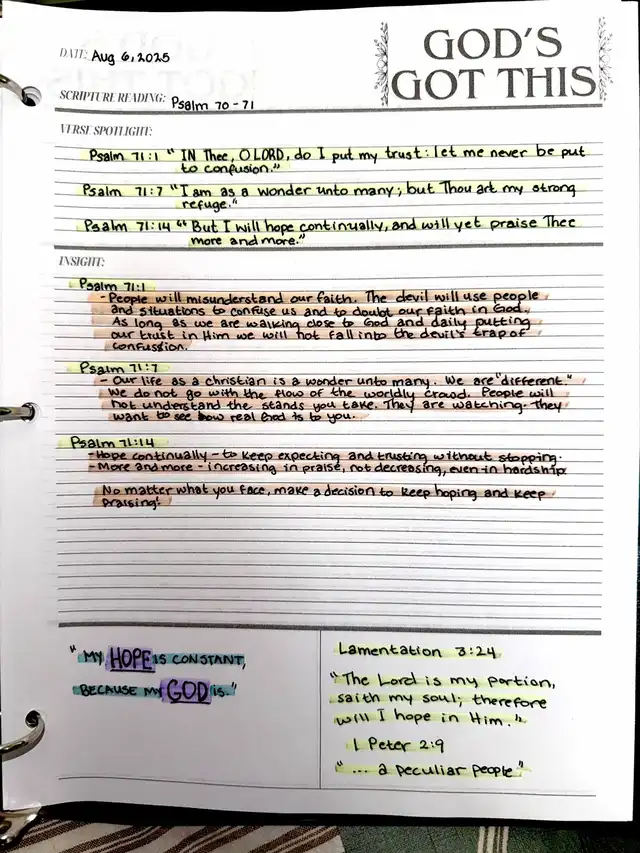 GOD'S
GOT THIS
DATE: Aug 6, 2025
SCRIPTURE READING: Psalm 70-71
VERSE SPOTLIGHT:
Psalm 71:1 " IN Thee, O LORD, do I put my trust: let me never be put
to confusion."
Psalm 71:7 "I am as a wonder unto many; but Thou art my strong
refuge."
Psalm 71:14 " But I will hope continually, and will yet praise Thee
more and more."
INSIGHT:
Psalm 71:1
- People will misunderstand our faith. The devil will use people
and situations to confuse us and to doubt our faith in God.
As long as we are walking close to God and daily putting
our trust in Him we will not fall into the devil's trap of
confussion.
Psalm 71:7
- Our life as a christian is a wonder unto many. We are "different."
We do not go with the flow of the worldly crowd. People will
not understand the stands you take. They are watching. They
want to see how real God is to you.
Psalm 71:14
- Hope continually - to keep expecting and trusting without stopping.
- More and more - increasing in praise, not decreasing, even in hardship.
No matter what you face, make a decision to keep hoping and keep
praising!
" MY HOPE IS CONSTANT,
BECAUSE MY GOD IS."
Lamentation 3:24
"The Lord is my portion,
saith my soul; therefore
will I hope in Him."
1 Peter 2:9
"... a peculiar people"